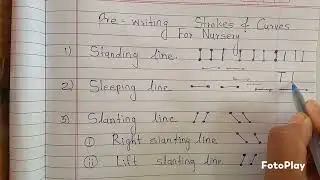 Pre-writing Strokes & Curves
For Nursery
1) Standing line.
2) Sleeping line
3) Slanting line
(i) Right slanting line
(ii) Lift slanting line
FotoPlay